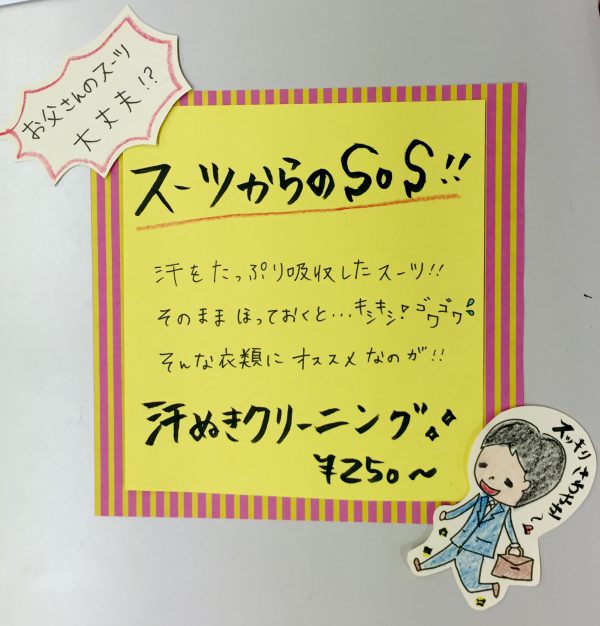 お父さんのスーツ
大丈夫!?
スーツからのSOS!!
汗をたっぷり吸収したスーツ!!
そのまま ほっておくと…キシキシ ゴワゴワ
そんな衣類に オススメなのが!!
汗ぬきクリーニング
¥250〜
スッキリ さわやか〜